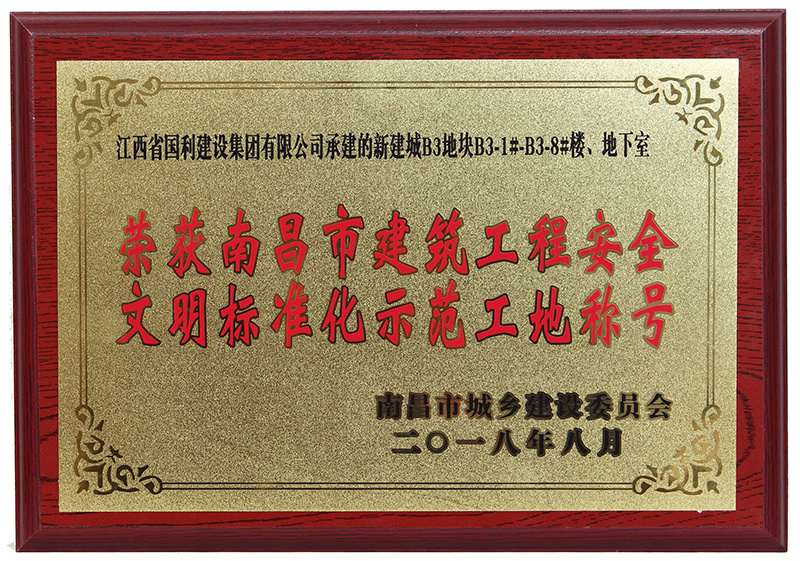 江西省国利建设集团有限公司承建的新建城B3地块B3-1#-B3-8#楼、地下室
荣获南昌市建筑工程安全
文明标准化示范工地称号
南昌市城乡建设委员会
二〇一八年八月